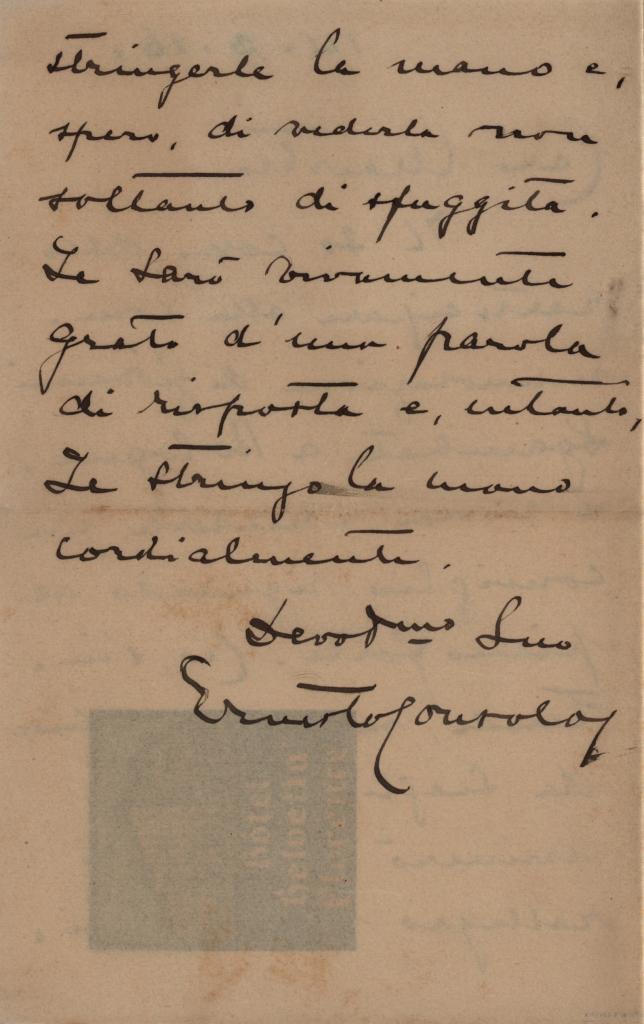 stringerle la mano e,
spero, di vederla non
soltanto di sfuggita.
Le sarò vivamente
grato d'una parola
di risposta e, intanto,
Le stringo la mano
cordialmente.
Devotmo Suo
Ernesto Consolo